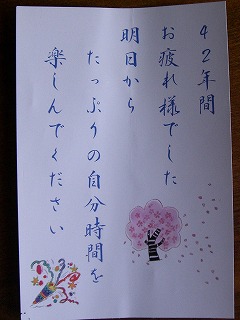 42年間
お疲れ様でした
明日から
たっぷりの自分時間を
楽しんでください